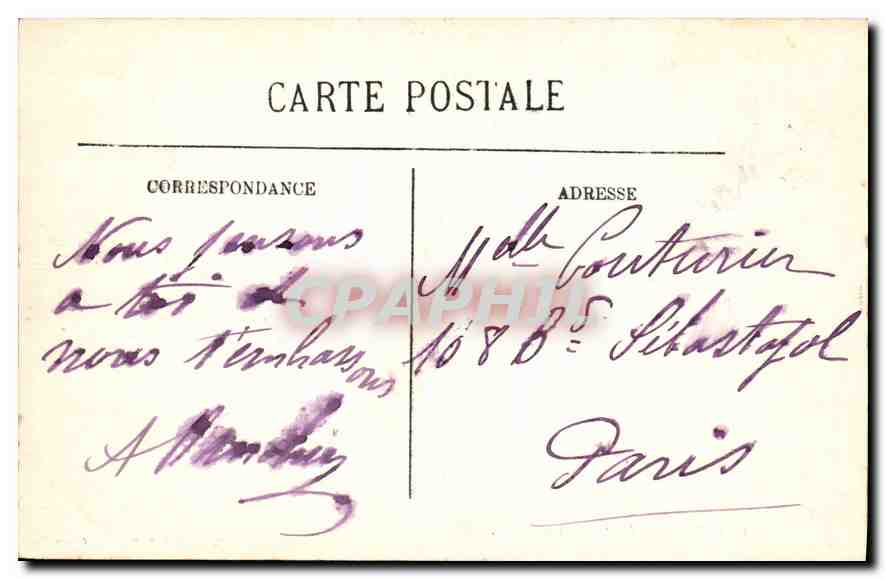 CARTE POSTALE
CORRESPONDANCE
Nous pensons
a toi et
nous t'embrass
ons
A
ADRESSE
Mdlle Couturier
108 Bd Sébastopol
Paris
CPAPHIL